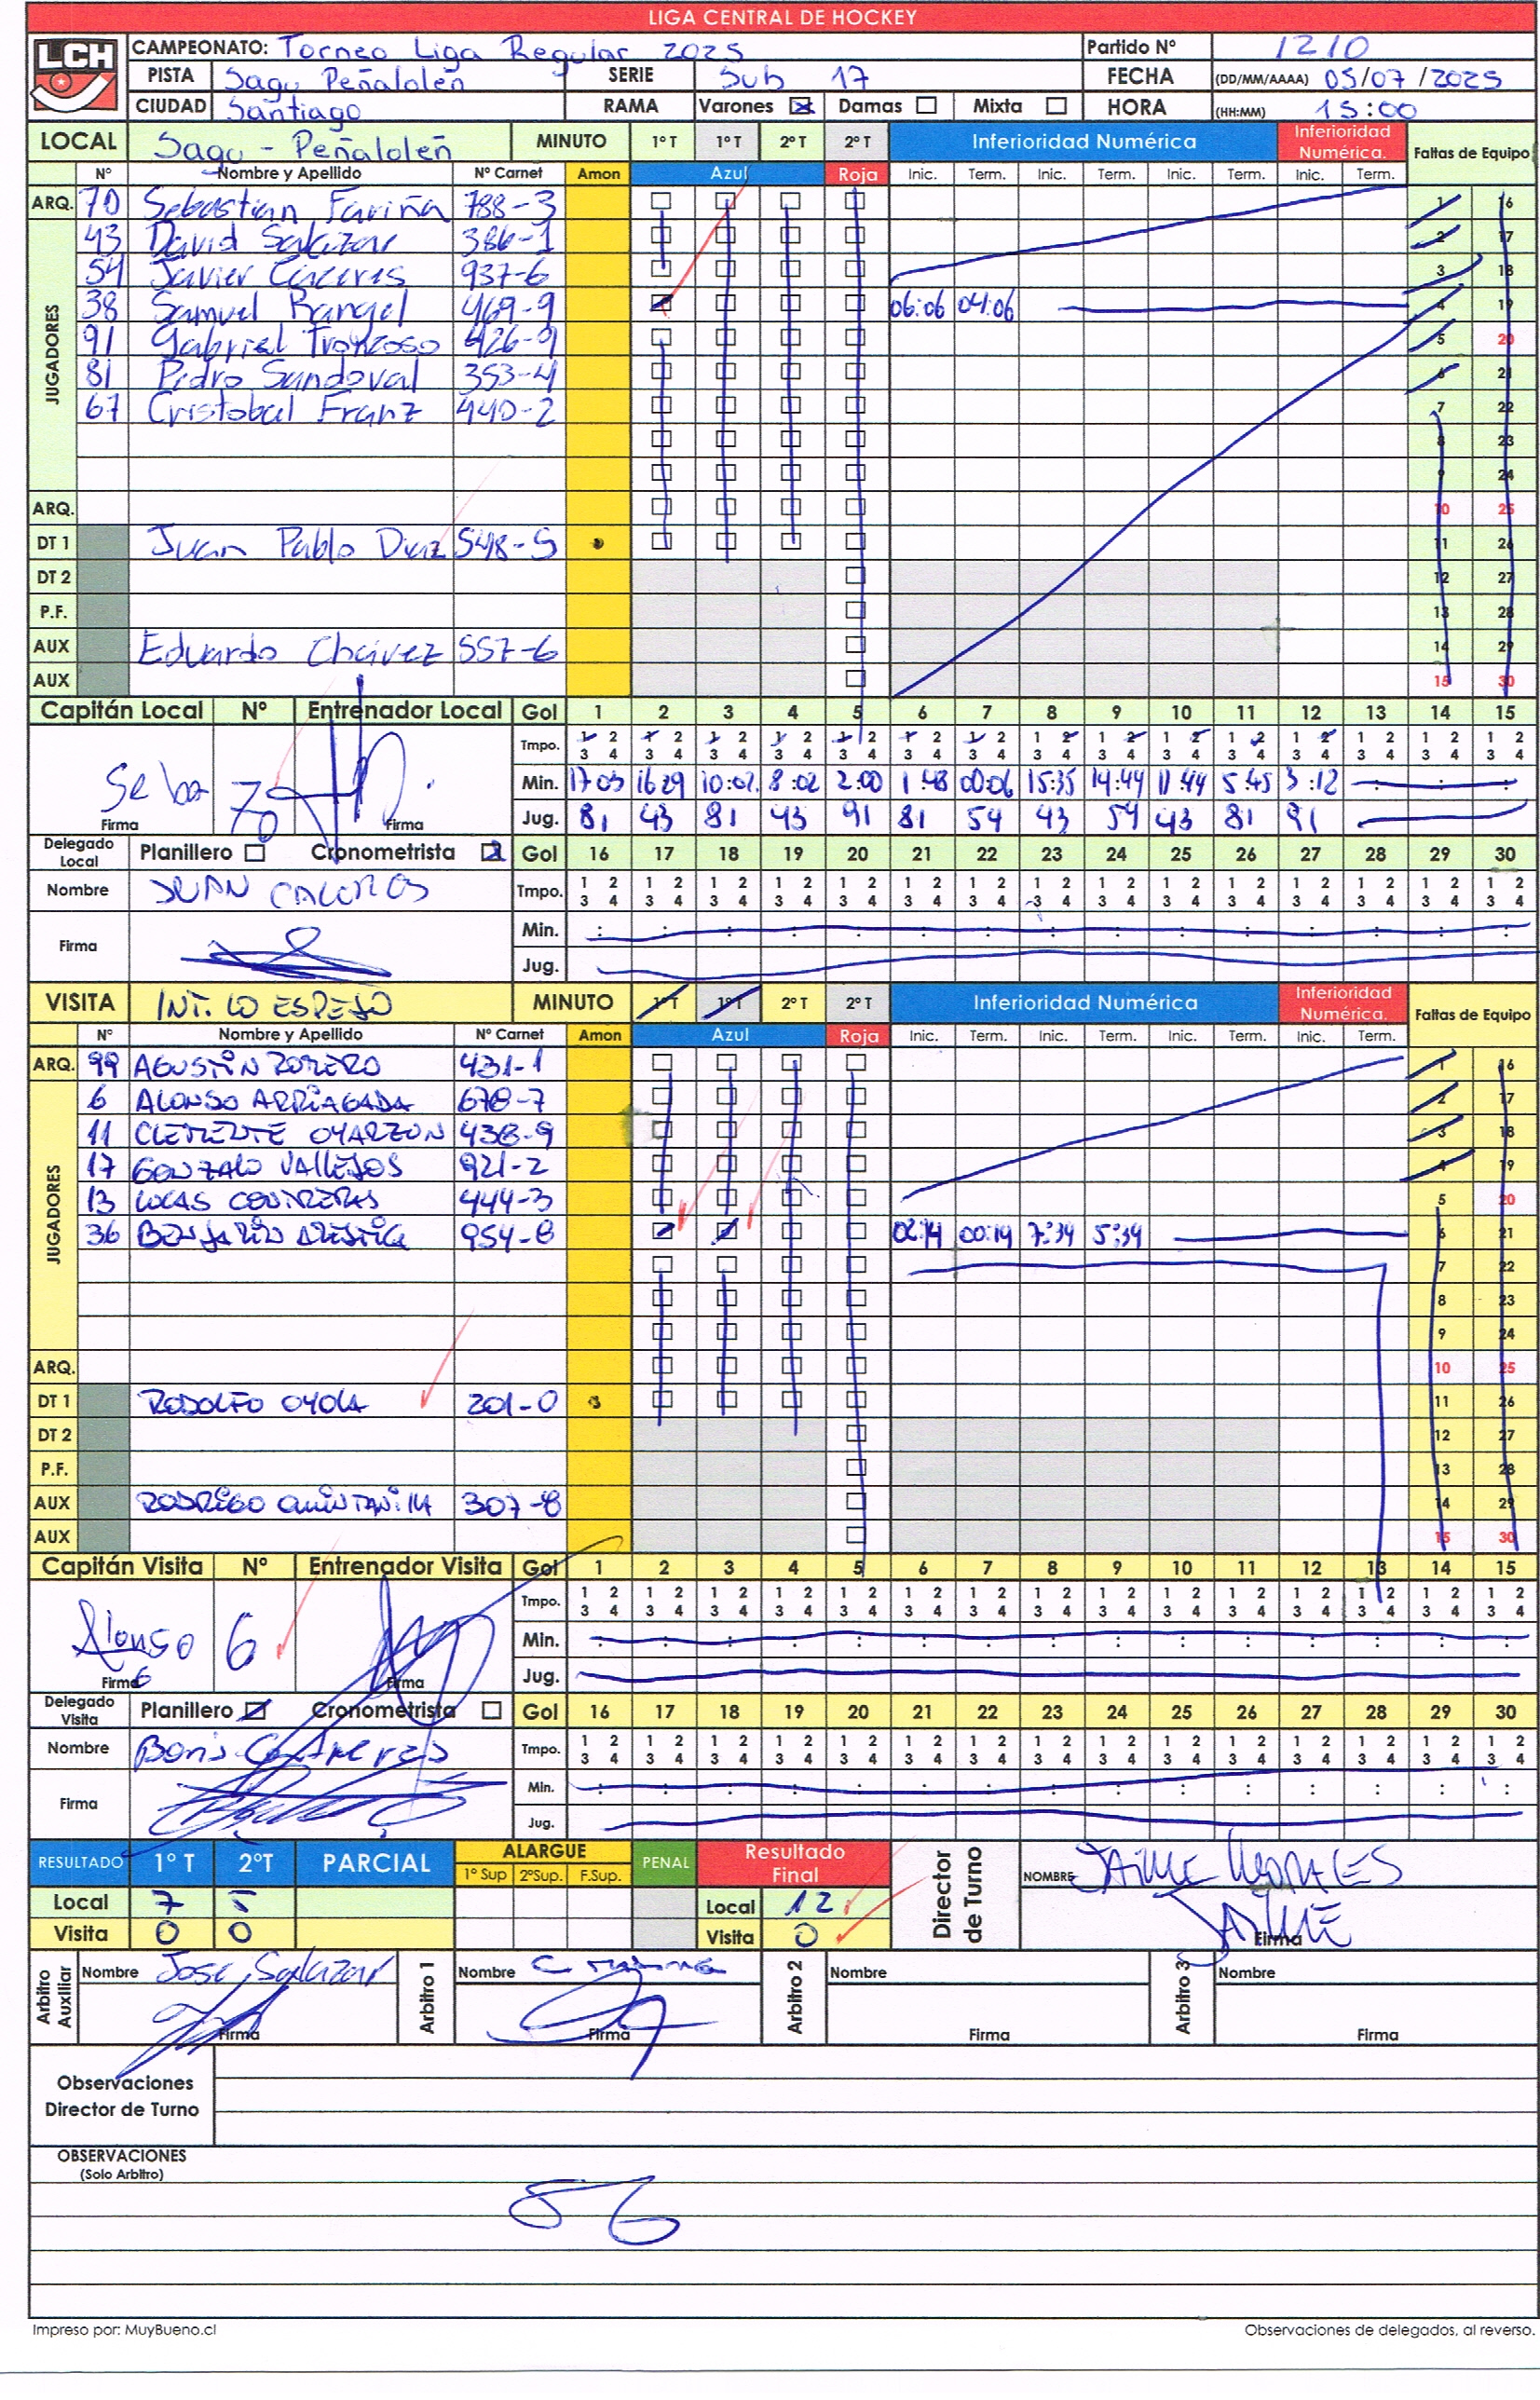 LIGA CENTRAL DE HOCKEY
LCH
CAMPEONATO: Torneo Liga Regular 2025 Partido Nº 1210
PISTA Sagu Peñalolén SERIE Sub 17 FECHA (DD/MM/AAAA) 05/07/2025
CIUDAD Santiago RAMA Varones Damas Mixta HORA (HH:MM) 15:00
LOCAL Sagu - Peñalolén MINUTO 1º T 1º T 2º T 2º T Inferioridad Numérica Inferioridad Numérica. Faltas de Equipo
Nº Nombre y Apellido Nº Carnet Amon Azul Roja Inic. Term. Inic. Term. Inic. Term. Inic. Term.
ARQ. 70 Sebastian Fariña 788-3 1 16
JUGADORES
43 David Salazar 386-1 2 17
54 Javier Caceres 937-6 3 18
38 Samuel Rangel 469-9 06:06 04:06 4 19
91 Gabriel Troncoso 426-9 5 20
81 Pedro Sandoval 353-4 6 21
67 Cristobal Franz 440-2 7 22
8 23
9 24
ARQ. 10 25
DT 1 Juan Pablo Diaz 548-5 11 26
DT 2 12 27
P.F. 13 28
AUX Eduardo Chávez 557-6 14 29
AUX 15 30
Capitán Local Nº Entrenador Local Gol 1 2 3 4 5 6 7 8 9 10 11 12 13 14 15
Tmpo. 1 2 1 2 1 2 1 2 1 2 1 2 1 2 1 2 1 2 1 2 1 2 1 2 1 2 1 2 1 2
3 4 3 4 3 4 3 4 3 4 3 4 3 4 3 4 3 4 3 4 3 4 3 4 3 4 3 4 3 4
Seba 70 Min. 17:03 16:29 10:02 8:02 2:00 1:48 00:06 15:35 14:44 11:44 5:45 3:12
Firma Firma Jug. 81 43 81 43 91 81 54 43 54 43 81 91
Delegado Local Planillero Cronometrista Gol 16 17 18 19 20 21 22 23 24 25 26 27 28 29 30
Nombre JUAN Tmpo. 1 2 1 2 1 2 1 2 1 2 1 2 1 2 1 2 1 2 1 2 1 2 1 2 1 2 1 2 1 2
3 4 3 4 3 4 3 4 3 4 3 4 3 4 3 4 3 4 3 4 3 4 3 4 3 4 3 4 3 4
Firma Min. : : : : : : : : : : : : : : :
Jug.
VISITA INT. LO ESPEJO MINUTO 1º T 1º T 2º T 2º T Inferioridad Numérica Inferioridad Numérica. Faltas de Equipo
Nº Nombre y Apellido Nº Carnet Amon Azul Roja Inic. Term. Inic. Term. Inic. Term. Inic. Term.
ARQ. 99 AGUSTIN ROMERO 431-1 1 16
JUGADORES
6 ALONSO ARRIAGADA 678-7 2 17
11 CLEMENTE OYARZUN 438-9 3 18
17 GONZALO VALLEJOS 921-2 4 19
13 LUCAS CONTRERAS 444-3 5 20
36 BENJAMIN 954-8 00:19 7:34 5:34 6 21
7 22
8 23
9 24
ARQ. 10 25
DT 1 RODOLFO OYOLA 201-0 11 26
DT 2 12 27
P.F. 13 28
AUX RODRIGO QUINTANILLA 307-8 14 29
AUX 15 30
Capitán Visita Nº Entrenador Visita Gol 1 2 3 4 5 6 7 8 9 10 11 12 13 14 15
Tmpo. 1 2 1 2 1 2 1 2 1 2 1 2 1 2 1 2 1 2 1 2 1 2 1 2 1 2 1 2 1 2
3 4 3 4 3 4 3 4 3 4 3 4 3 4 3 4 3 4 3 4 3 4 3 4 3 4 3 4 3 4
Alonso 6 Min. : : : : : : : : : : : : : : :
Firma 6 Firma Jug.
Delegado Visita Planillero Cronometrista Gol 16 17 18 19 20 21 22 23 24 25 26 27 28 29 30
Nombre Boris Contreras Tmpo. 1 2 1 2 1 2 1 2 1 2 1 2 1 2 1 2 1 2 1 2 1 2 1 2 1 2 1 2 1 2
3 4 3 4 3 4 3 4 3 4 3 4 3 4 3 4 3 4 3 4 3 4 3 4 3 4 3 4 3 4
Firma Min. : : : : : : : : : : : : : : :
Jug.
RESULTADO 1º T 2ºT PARCIAL ALARGUE PENAL Resultado Final Director de Turno NOMBRE JAIME MORALES
1º Sup 2ºSup. F.Sup.
Local 7 5 Local 12 JAIME
Visita 0 0 Visita 0 Firma
Arbitro Auxiliar Nombre Jose Salazar Arbitro 1 Nombre Arbitro 2 Nombre Arbitro 3 Nombre
Firma Firma Firma Firma
Observaciones
Director de Turno
OBSERVACIONES
(Solo Arbitro)
Impreso por: MuyBueno.cl Observaciones de delegados, al reverso.